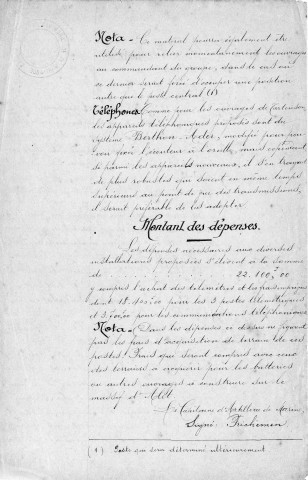 Nota - Ce matériel pourra également être
utilisé pour relier momentanément les ouvrages
au commandant du groupe, dans le cas où
ce dernier serait forcé d'occuper une position
autre que le poste central (1)
Téléphones. Comme pour les ouvrages de l'extension
les appareils téléphoniques prévus sont du
système Berthon-Ader, modifié pour
l'oreille, mais
de parmi les appareils nouveaux, il s'en trouvait
de plus robustes qui soient en même temps
supérieurs au point de vue des transmissions,
il serait préférable de les adopter.
Montant des dépenses.
Les dépenses nécessaires aux diverses
installations proposées s'élèvent à la somme
de 22.100,00
y compris l'achat des télémètres et les
dont 18. pour les 3 postes
et pour les communications téléphoniques
Nota - Dans les dépenses ci dessus ne figurent
pas les frais d'acquisition de terrain de ces
postes. Frais qui seront compris avec ceux
des terrains à acquérir pour les batteries
ou autres ouvrages à construire sur le
massif d'
Le Capitaine d'Artillerie de Marine,
Signé:
(1) Poste qui sera déterminé ultérieurement